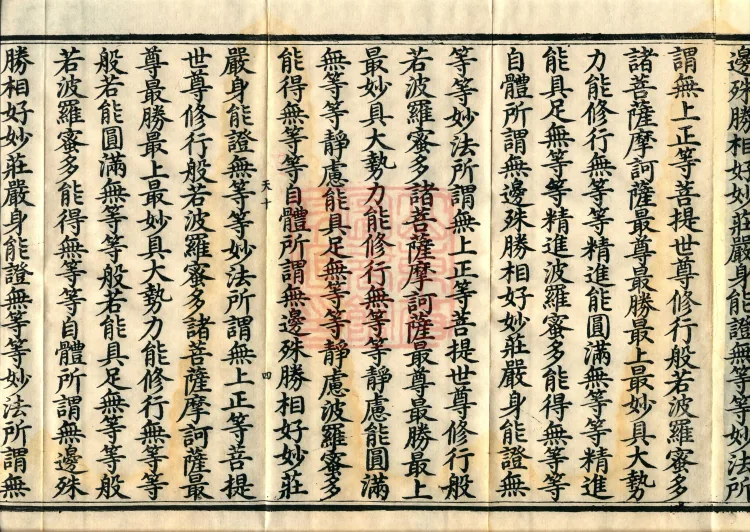 邊殊勝相好妙莊嚴身能證無等等妙法所
謂無上正等菩提世尊修行般若波羅蜜多
諸菩薩摩訶薩最尊最勝最上最妙具大勢
力能修行無等等精進能圓滿無等等精進
能具足無等等精進波羅蜜多能得無等等
自體所謂無邊殊勝相好妙莊嚴身能證無
等等妙法所謂無上正等菩提世尊修行般
若波羅蜜多諸菩薩摩訶薩最尊最勝最上
最妙具大勢力能修行無等等靜慮能圓滿
無等等靜慮能具足無等等靜慮波羅蜜多
能得無等等自體所謂無邊殊勝相好妙莊
天十 四
嚴身能證無等等妙法所謂無上正等菩提
世尊修行般若波羅蜜多諸菩薩摩訶薩最
尊最勝最上最妙具大勢力能修行無等等
般若能圓滿無等等般若能具足無等等般
若波羅蜜多能得無等等自體所謂無邊殊
勝相好妙莊嚴身能證無等等妙法所謂無